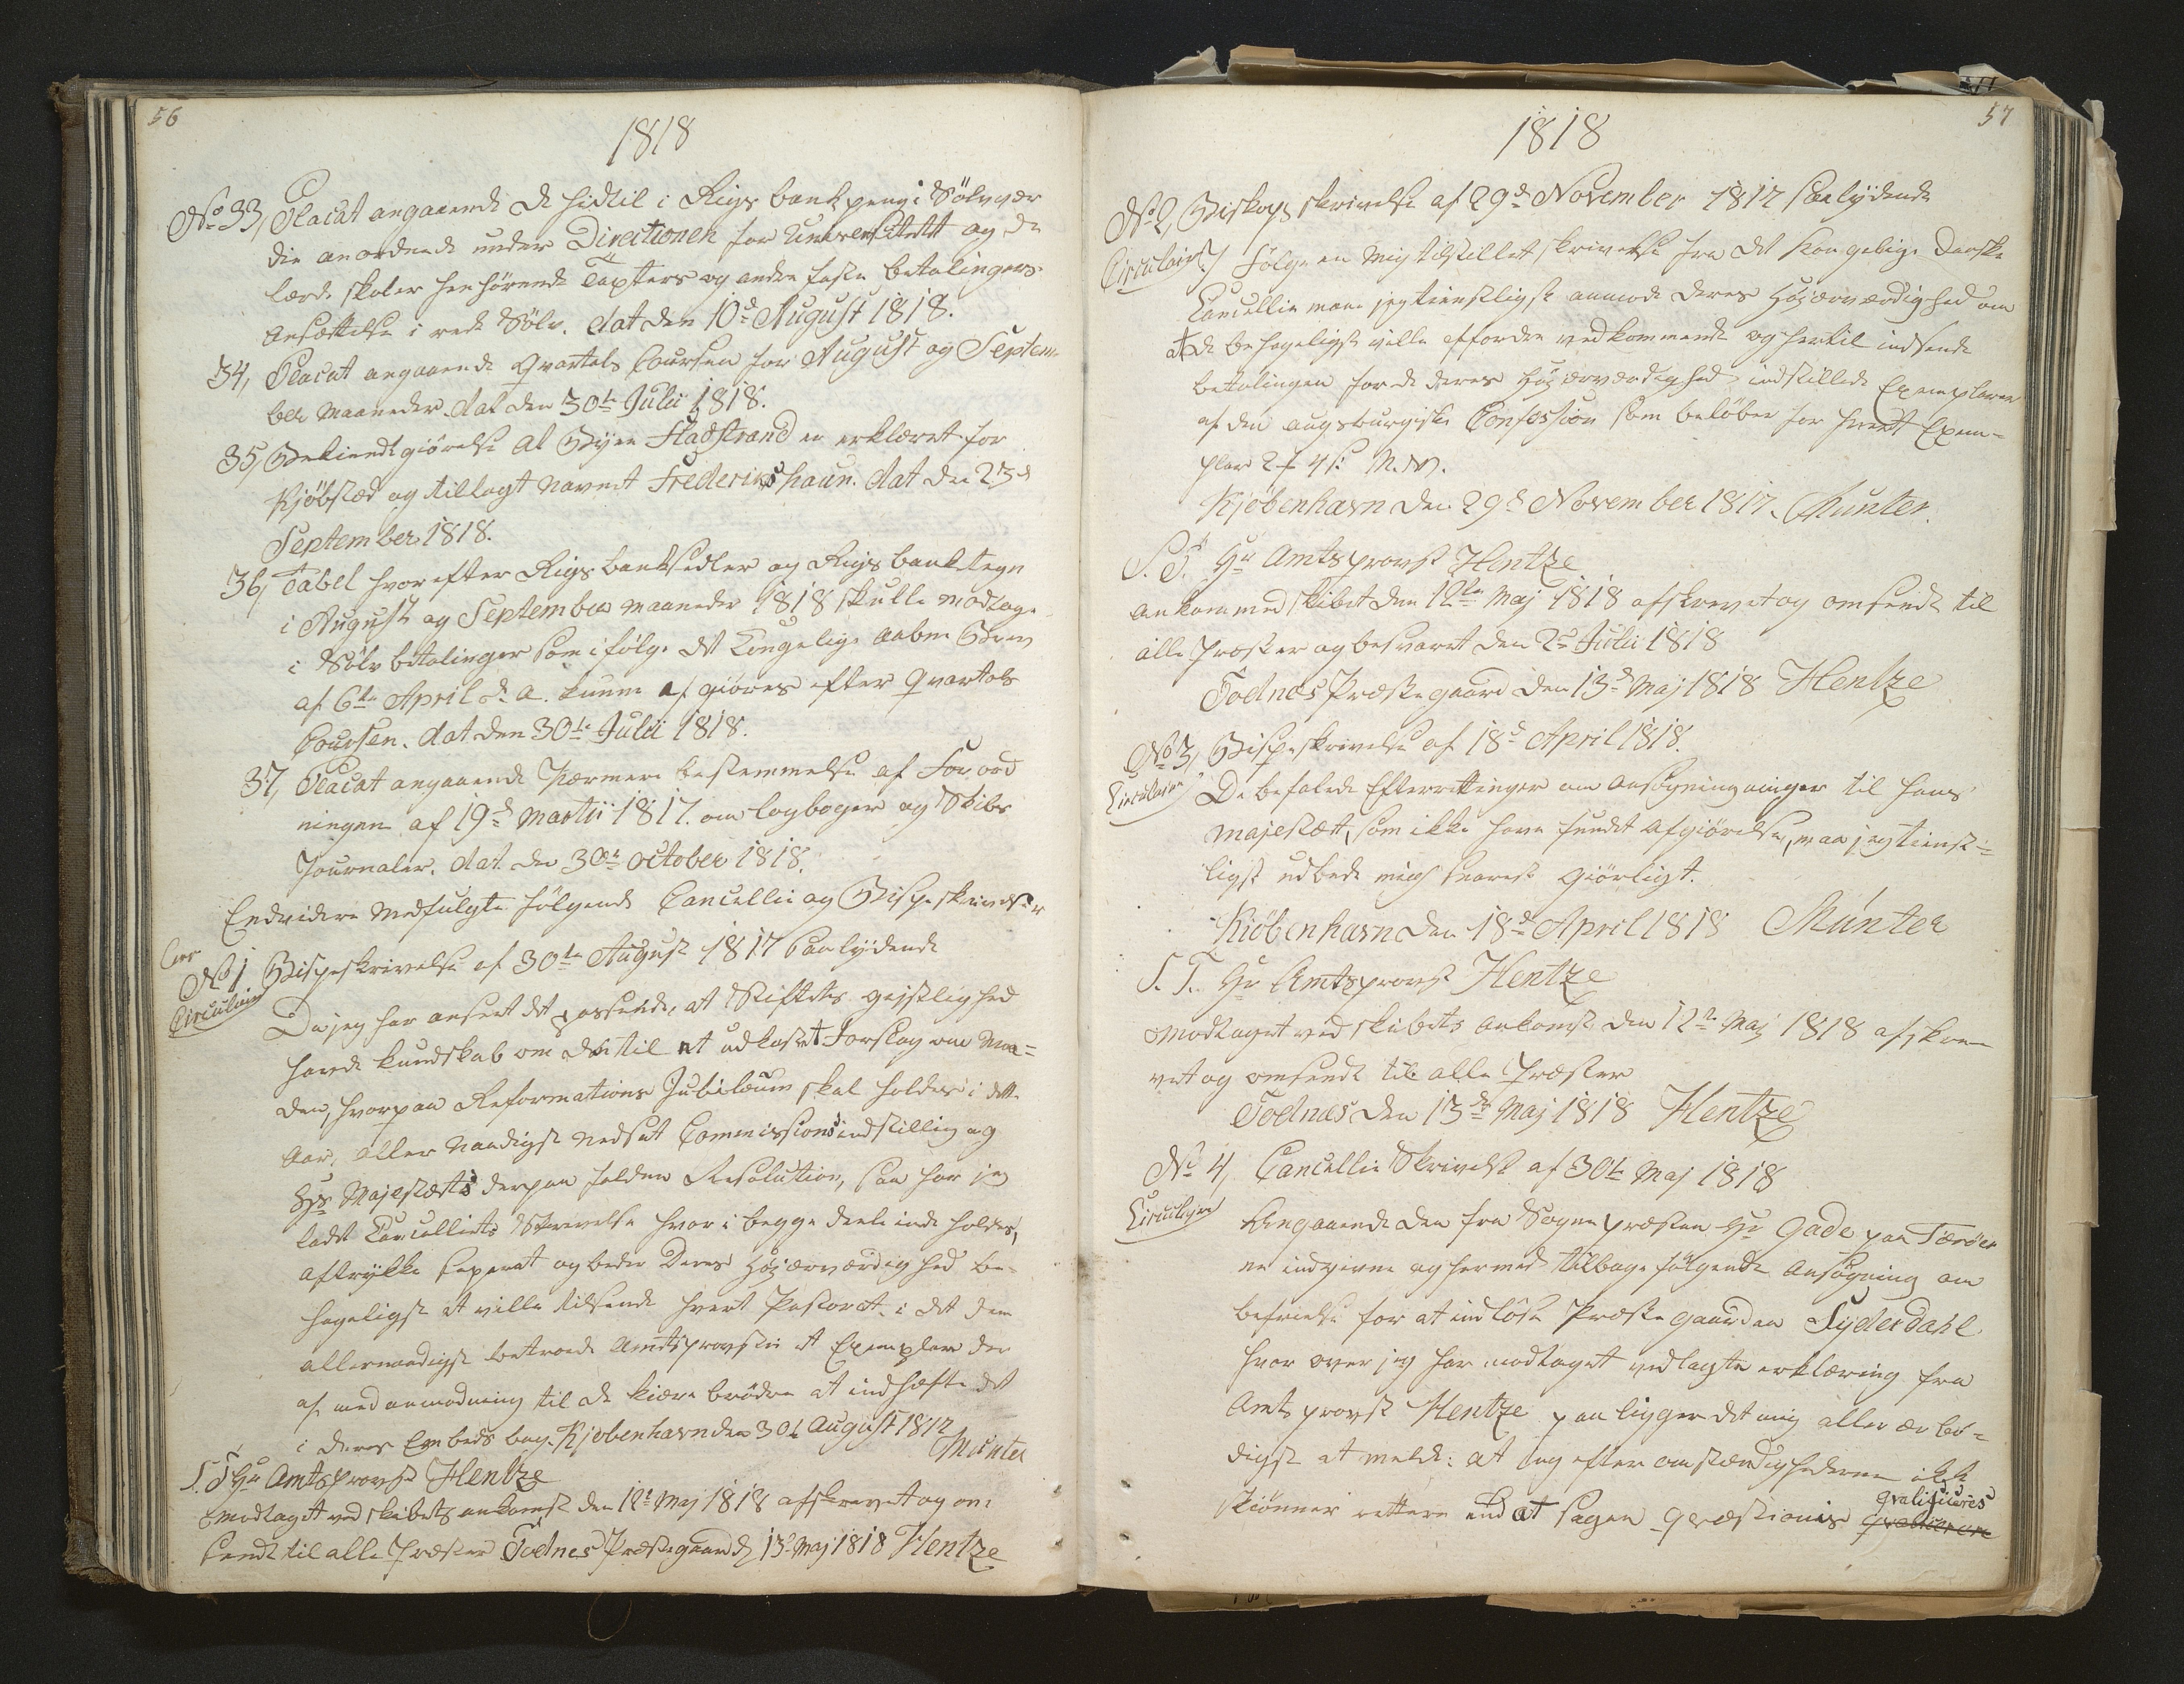 56
1818
No 33, Placat angaaende de hidtil i Rigsbankpenge Sölvvær
die anordnede under Directionen for Universitetet og de
lærde skoler henhörende Taxters og andre faste betalingers
ansættelse i rede Sölv. dat den 10d August 1818.
34, Placat angaaende Qvartals Coursen for August og Septem-
ber Maaneder dat den 30te Julii 1818.
35, Bekiendtgiörelse at Byen Fladstrand er erklæret for
Kjöbstæd og tillagt Navnet Frederikshaun. dat den 23d
September 1818.
36, Tabel hvorefter Rigsbanksedler og Rigsbanktegn
i August og September Maaneder 1818 skulle modtages
i Sölv betalinger som ifölge det Kongelige aabne Brev
af 6te April d. a. kunne afgiöres efter Qvartals
Coursen. dat den 30te Julii 1818.
37, Placat angaaende Nærmere bestemmelse af Forord
ningen af 19d Martii 1817. om logböger og Skibs
Journaler. dat. den 30te October 1818.
Endvidere Medfulgte fölgende Cancellie og Bispeskrivelser
No 1 Bispeskrivelse af 30te August 1817 saalydende
Circulair
Da jeg har anseet det passende, at Stiftets gejstlighed
havde kundskab om det til at udkaste Forslag om Maa=
den, hvorpaa Reformations Jubilæum skal holdes i dette
Aar, allernaadigst nedsat Commissions indstilling og
Hs Majestæts derpaa faldne Resolution, saa har jeg
ladet Cancelliets Skrivelse hvori begge deele indeholdes,
aftrykke separat og beder Deres Höjærværdighed be-
hageligst at ville tilsende hvert Pastorat i det dem
allernaadigst betroede Amtsprovstie et Exemplar der
af med anmodning til de kiære brödre at indhæfte det
i deres Embeds bog. Kjøbenhavn den 30te August 1817
Münter
S. T. Hr Amtsprovst Hentze
Modtaget ved skibets ankomst den 12te Maj 1818 afskrevet og om-
sendt til alle Præster Todnes Præstegaard d 13d Maj 1818 Hentze
57
1818
No 2, Biskops skrivelse af 29d November 1817 saalydende
Circulair
Fölge en mig tilstillet skrivelse fra det Kongelige danske
Cancellie maae jeg tienstligst anmode deres Höjærværdighed om
at De behageligst ville affordre vedkommende og hertil indsende
betalingen for de deres Höjærværdighed tilstillede Exemplarer
af den augsburgiske Confession som belöber for hvert Exem-
plar 2 # 4 s. N. V.
Kjøbenhavn den 29d November 1817. Münter.
S. T. Hr Amtsprovst Hentze
ankom med skibet den 12te Maj 1818 afskrevet og omsendt til
alle Præster og besvaret den 2d Julii 1818
Todnæs Præstegaard den 13d Maj 1818 Hentze
No 3, Bispeskrivelse af 18d April 1818.
Circulair
De befalede Efterretninger om ansögninger til hans
Majestæt, som ikke have fundet afgiörelse, maa jeg tienst=
ligst udbede mig snarest giörligt.
Kiöbenhavn den 18d April 1818 Münter
S. T. Hr Amtsprovst Hentze
Modtaget ved skibets ankomst den 12te Maj 1818 afskre-
vet og omsendt til alle Præster
Todnæs den 13de Maj 1818 Hentze
No 4, Cancellie Skrivelse af 30te Maj 1818
Circulair
Angaaende den fra Sognepræsten Hr Gade paa Færöer
ne indgivne og hermed tilbage fölgende Ansögning om
befrielse for at indlöse Præstegaarden Syderdahl
hvor over jeg har modtaget vedlagte erklæring fra
Amtsprovst Hentze paaligger det mig allerærbö=
digst at melde: at jeg efter omstændighederne ikke
skiönner rettere end at sagen qvæstionis qvalificeres